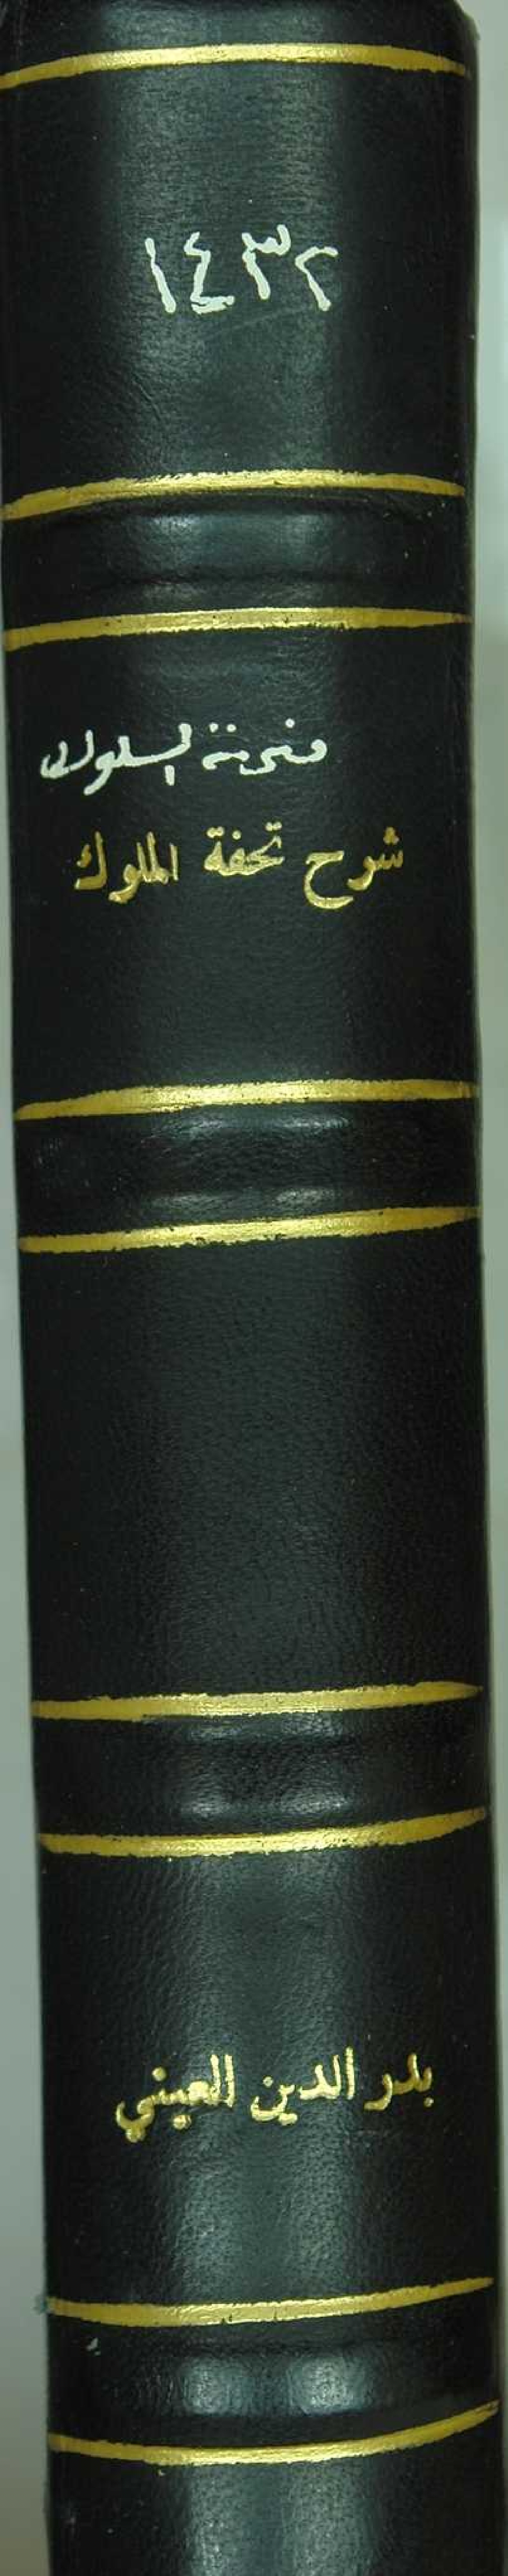 ١٤٣٢
منحة السلوك
شرح تحفة الملوك
بدر الدين العيني